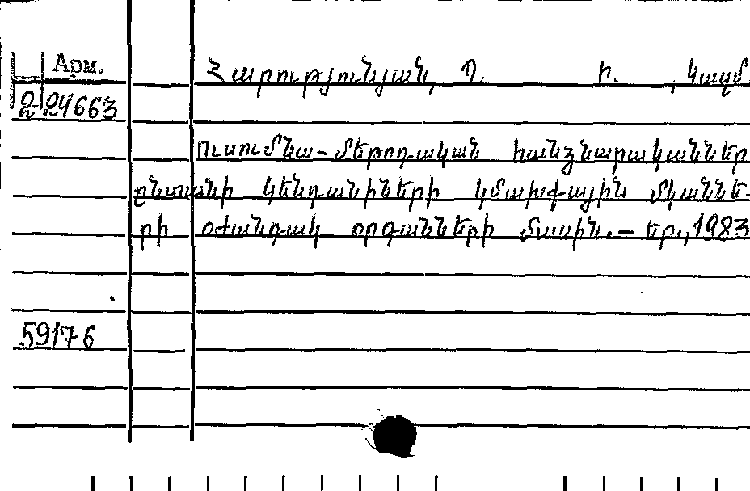 Арм.
Հարությունյան, Պ. Ի. , կազմ
Ձ 24663
Ուսումնա-մեթոդական հանձնարարականներ
ընտանի կենդանիների կմախքային մկաննե-
րի օժանդակ օրգանների մասին.— Եր., 1983
59176